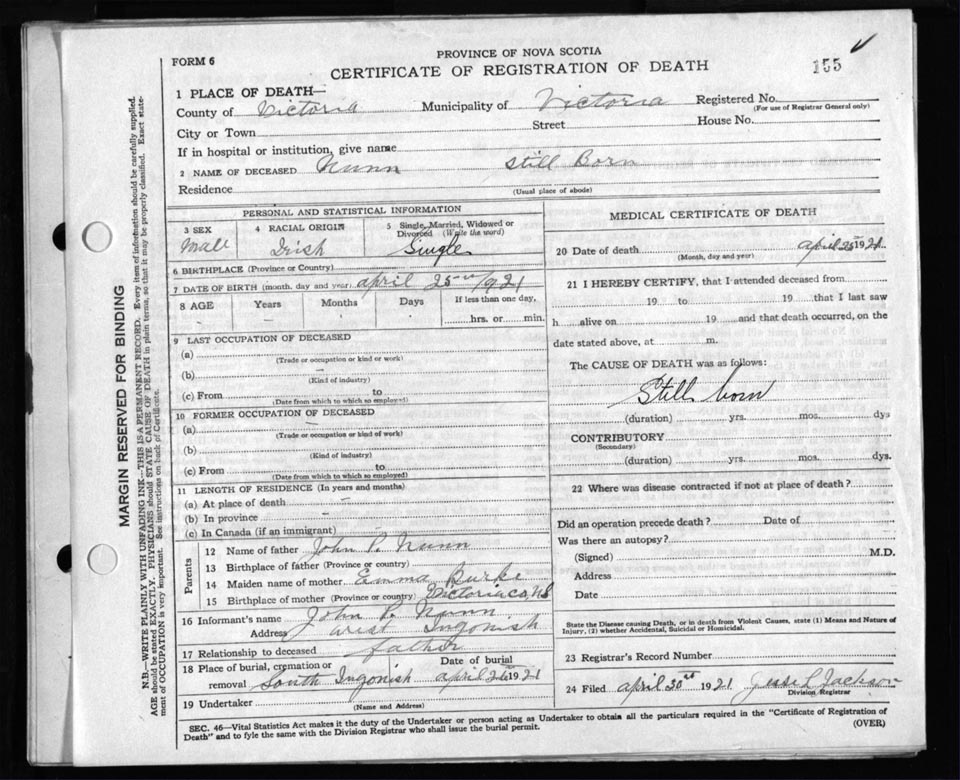 FORM 6
PROVINCE OF NOVA SCOTIA
CERTIFICATE OF REGISTRATION OF DEATH
155
1 PLACE OF DEATH—
County of Victoria Municipality of Victoria Registered No.
(For use of Registrar General only)
City or Town Street House No.
If in hospital or institution, give name
2 NAME OF DECEASED Nunn Still Born
Residence
(Usual place of abode)
PERSONAL AND STATISTICAL INFORMATION
3 SEX 4 RACIAL ORIGIN 5 Single, Married, Widowed or Divorced (Write the word)
Male Irish Single
6 BIRTHPLACE (Province or Country)
7 DATE OF BIRTH (month, day and year) April 25th 1921
8 AGE Years Months Days If less than one day,
hrs. or min.
9 LAST OCCUPATION OF DECEASED
(a)
(Trade or occupation or kind of work)
(b)
(Kind of industry)
(c) From to
(Date from which to which so employed)
10 FORMER OCCUPATION OF DECEASED
(a)
(Trade or occupation or kind of work)
(b)
(Kind of industry)
(c) From to
(Date from which to which so employed)
11 LENGTH OF RESIDENCE (In years and months)
(a) At place of death
(b) In province
(c) In Canada (if an immigrant)
Parents
12 Name of father John P. Nunn
13 Birthplace of father (Province or country)
14 Maiden name of mother Emma Burke
15 Birthplace of mother (Province or country) Victoria co, NS
16 Informant's name John P. Nunn
Address West Ingonish
17 Relationship to deceased father
18 Place of burial, cremation or Date of burial
removal South Ingonish April 26 1921
19 Undertaker
(Name and Address)
MEDICAL CERTIFICATE OF DEATH
20 Date of death April 25 1921
(Month, day and year)
21 I HEREBY CERTIFY, that I attended deceased from
19 to 19 that I last saw
h alive on 19 and that death occurred, on the
date stated above, at m.
The CAUSE OF DEATH was as follows:
Still born
(duration) yrs. mos. dys
CONTRIBUTORY
(Secondary)
(duration) yrs. mos. dys.
22 Where was disease contracted if not at place of death?
Did an operation precede death? Date of
Was there an autopsy?
(Signed) M.D.
Address
Date
State the Disease causing Death, or in death from Violent Causes, state (1) Means and Nature of
Injury, (2) whether Accidental, Suicidal or Homicidal.
23 Registrar's Record Number
24 Filed April 30 1921 Jesse L Jackson
Division Registrar
SEC. 46—Vital Statistics Act makes it the duty of the Undertaker or person acting as Undertaker to obtain all the particulars required in the "Certificate of Registration of
Death" and to fyle the same with the Division Registrar who shall issue the burial permit.
(OVER)
MARGIN RESERVED FOR BINDING
N.B.—WRITE PLAINLY WITH UNFADING INK—THIS IS A PERMANENT RECORD. Every item of information should be carefully supplied.
AGE should be stated EXACTLY. PHYSICIANS should STATE CAUSE OF DEATH in plain terms, so that it may be properly classified. Exact state-
ment of OCCUPATION is very important. See instructions on back of Certificate.